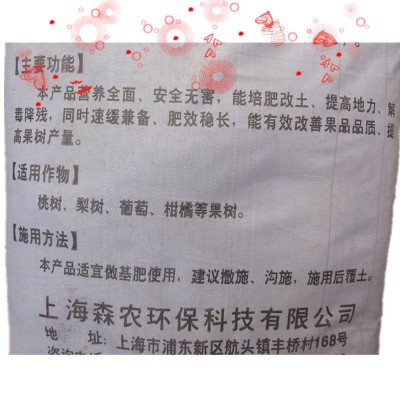 【主要功能】
本产品营养全面、安全无害，能培肥改土、提高地力、解
毒降残，同时速缓兼备、肥效稳长，能有效改善果品品质、提
高果树产量。
【适用作物】
桃树、梨树、葡萄、柑橘等果树。
【施用方法】
本产品适宜做基肥使用，建议撒施、沟施，施用后覆土。
上海森农环保科技有限公司
地 址：上海市浦东新区航头镇丰桥村168号